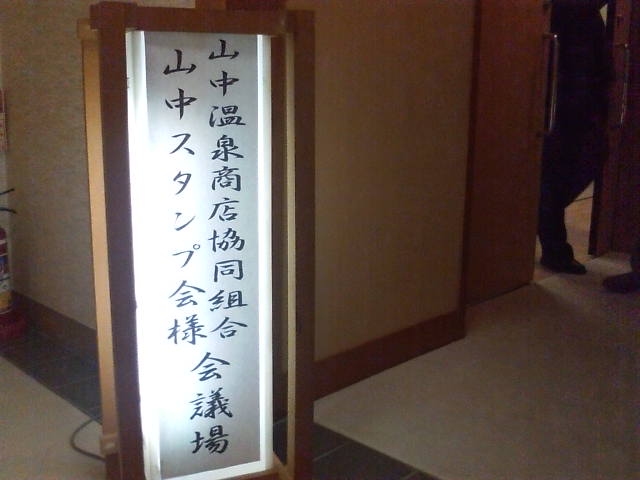 山中温泉商店協同組合
山中スタンプ会様
会議場